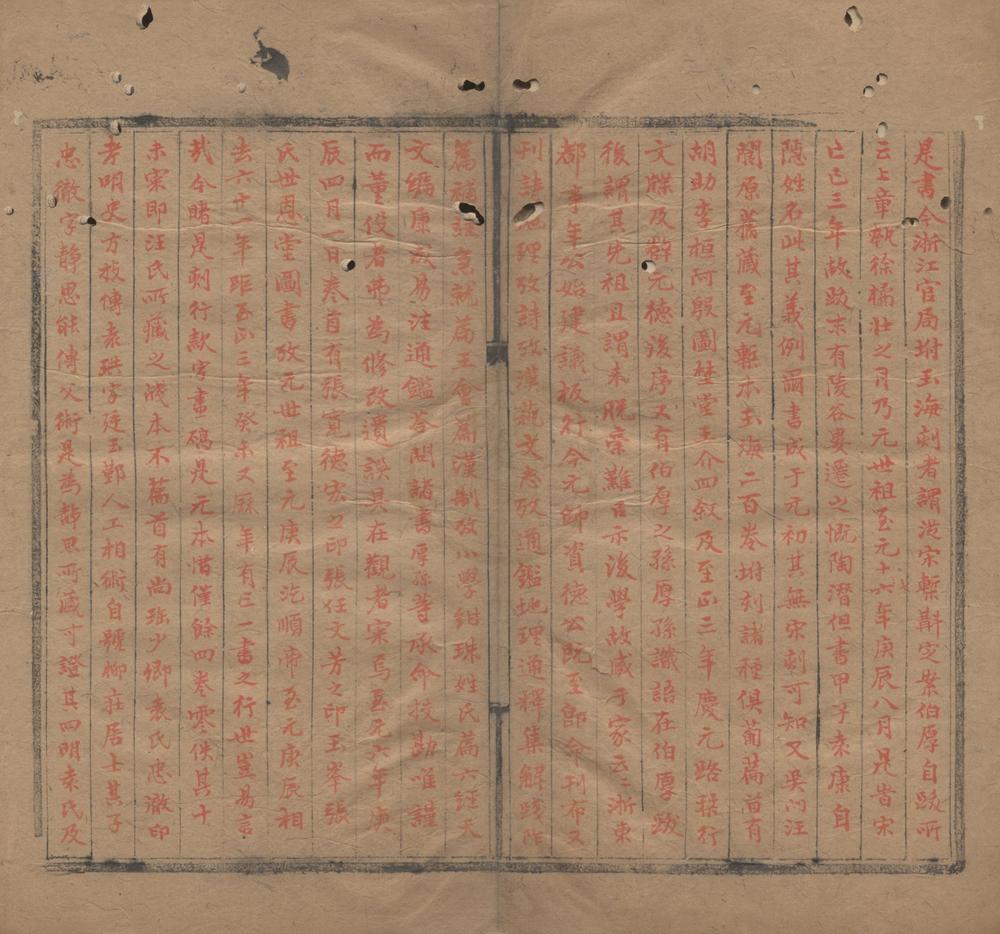 是書今浙江官局坿玉海刻者謂從宋槧斠定案伯厚自跋所
云上章執徐橘壯之月乃元世祖至元十六年庚辰八月是嵗宋
亡已三年故跋末有陵谷婁遷之慨陶潛但書甲子秉康自
隱姓名此其義例爾書成于元初其無宋刺可知又吳门汪
閬原舊藏至元槧本玉海二百卷坿刻諸種俱葡篇首有
胡助李桓阿殷圖埜堂王介四敘及至正三年慶元路琹行
文牒及薛元德後序又有伯厚之孫厚孫識語在伯厚跋
後謂其先祖且謂未脫稾難古示後學故臧于家云浙東
都事牟公始建議板行今元帥資德公既至卽命刊布又
刊詩地理攷詩攷漢蓺文志攷通鑑地理通釋集解踐阼
篇補註急就篇王會篇漢制攷小學紺珠姓氏篇六經天
文編康成易注通鑑答問諸書厚孫等承命挍勘唯謹
而董役者弗為修改遺誤具在觀者宷焉至元六年庚
辰四月一日卷首有張寬德宏之印張任文芳之印玉峯張
氏世恩堂圖書攷元世祖至元庚辰汔順帝至元庚辰相
去六十一年距至正三年癸未又厤年有三一書之行世豈易言
哉今睹是刺行款字畫碻是元本惜僅餘四卷零佚其十
未宷即汪氏所臧之淺本不篇首有尚璽少卿袁氏忠徹印
考明史方技傳袁珙字廷玉鄞人工相術自號柳莊居士其子
忠徹字靜思能傳父術是為靜思所臧寸證其四明袁氏及